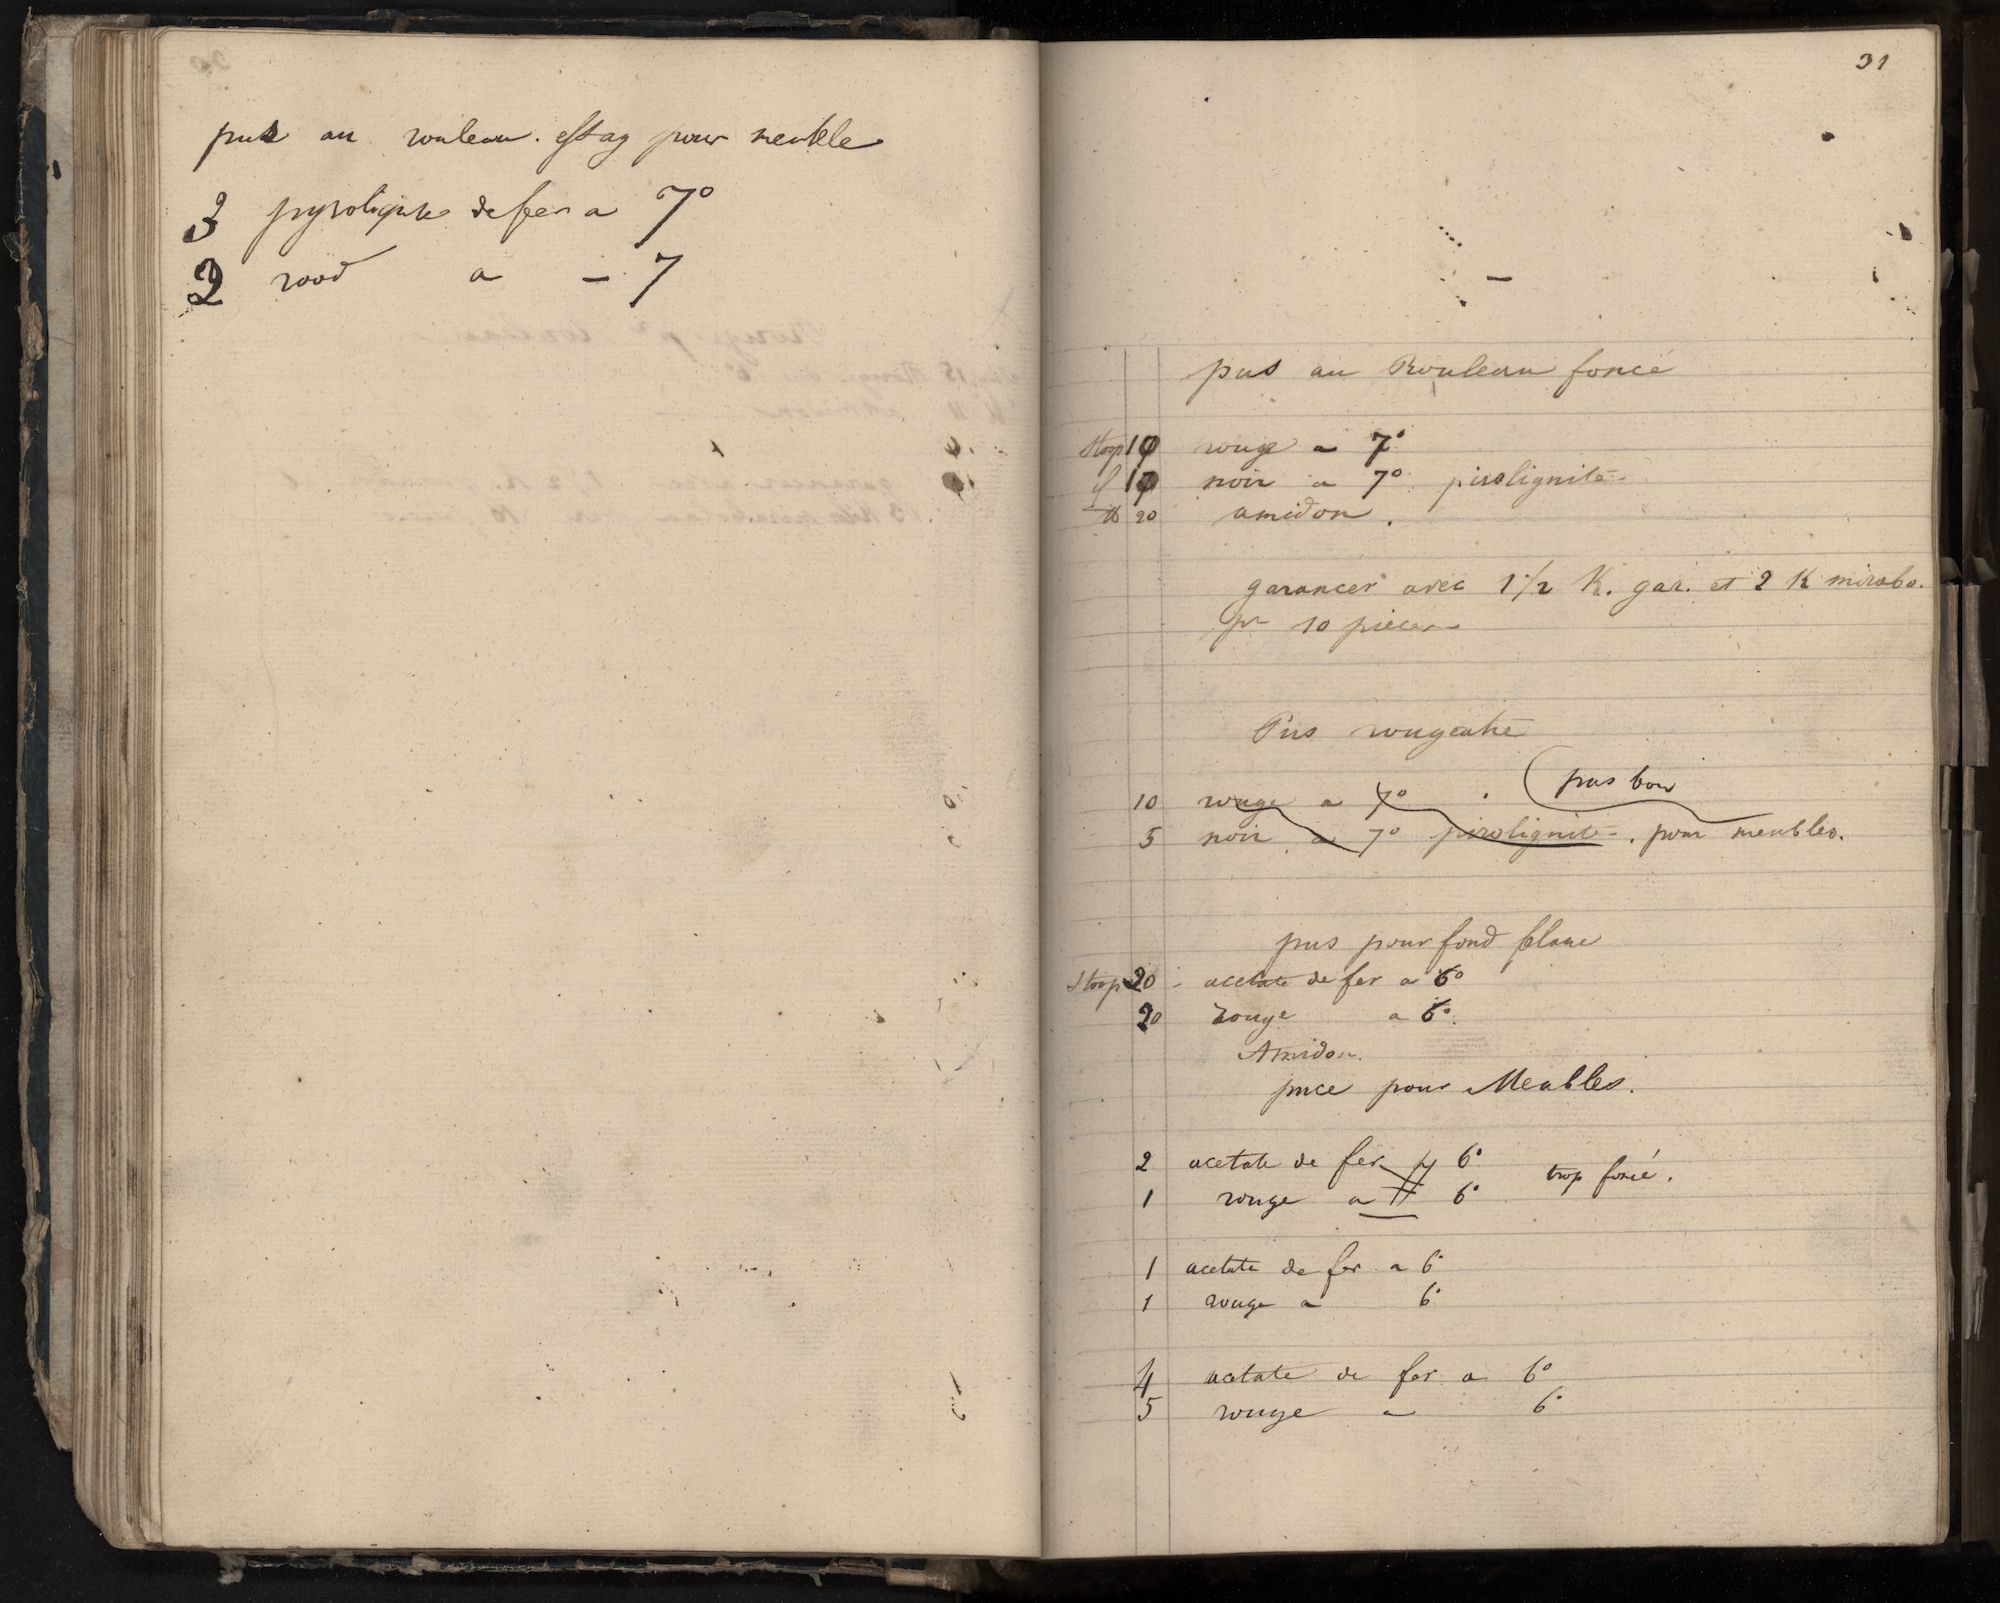 pus au rouleau. estag pour meuble
3 pyroligite de fer a 7°
2 rood a – 7
31
pus au Rouleau foncé
Stoop 10 rouge a 7°
10 noir a 7° pirolignite
℔ 20 amidon.
garancer avec 1 1/2 K. gar. et 2 K mirabo.
pr 10 pieces
Pus rougeatre
10 rouge a 7° pas bon
5 noir a 7° pirolignite. pour meubles.
pus pour fond blanc
Stoop 20 - acetate de fer a 6°
20 rouge a 6°.
Amidon.
puce pour Meubles.
2 acetate de fer 6°
trop foncé.
1 rouge a 6°
1 acetate de fer a 6°
1 rouge a 6°
4 acetate de fer a 6°
5 rouge a 6°